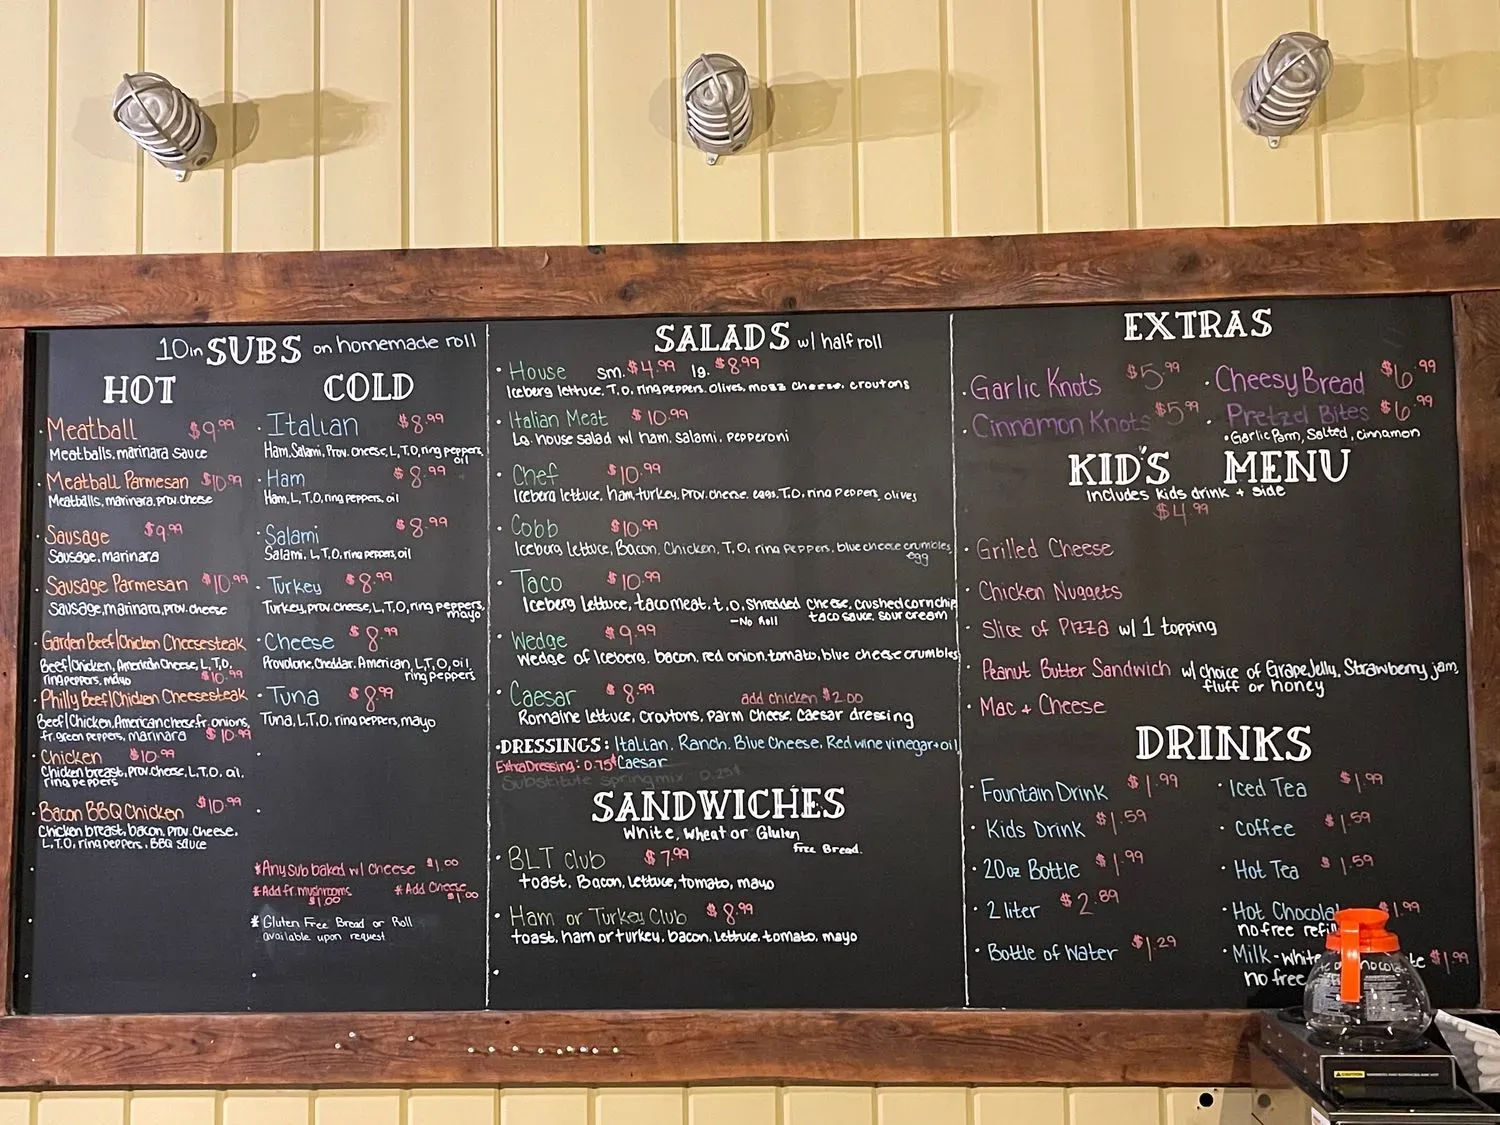 10in SUBS on homemade roll
HOT
Meatball $9.99
Meatballs, marinara sauce
Meatball Parmesan $10.99
Meatballs, marinara, prov. cheese
Sausage $9.99
Sausage, marinara
Sausage Parmesan $10.99
Sausage, marinara, prov. cheese
Garden Beef/Chicken Cheesesteak
Beef/Chicken, American Cheese, L, T, O,
ring peppers, mayo $10.99
Philly Beef/Chicken Cheesesteak
Beef/Chicken, American cheese fr. onions,
fr. green peppers, marinara $10.99
Chicken $10.99
Chicken breast, prov. cheese, L, T, O, oil,
ring peppers
Bacon BBQ Chicken $10.99
Chicken breast, bacon, prov. cheese,
L, T, O, ring peppers, BBQ sauce
COLD
Italian $8.99
Ham, Salami, Prov. cheese, L, T, O, ring peppers,
oil
Ham $8.99
Ham, L, T, O, ring peppers, oil
Salami $8.99
Salami, L, T, O, ring peppers, oil
Turkey $8.99
Turkey, prov. cheese, L, T, O, ring peppers,
mayo
Cheese $8.99
Provolone, Cheddar, American, L, T, O, oil,
ring peppers
Tuna $8.99
Tuna, L, T, O, ring peppers, mayo
*Any sub baked w/ cheese $1.00
*Add fr. mushrooms $1.00
*Add Cheese $1.00
*Gluten Free Bread or Roll
available upon request
SALADS w/ half roll
House sm. $4.99 lg. $8.99
Iceberg lettuce, T, O, ring peppers, olives, mozz cheese, croutons
Italian Meat $10.99
Lg. house salad w/ ham, salami, pepperoni
Chef $10.99
Iceberg lettuce, ham, turkey, prov. cheese, eggs, T, O, ring peppers, olives
Cobb $10.99
Iceburg lettuce, Bacon, Chicken, T, O, ring peppers, blue cheese crumbles,
egg
Taco $10.99
Iceberg lettuce, taco meat, t, o, shredded cheese, crushed corn chip
-No Roll taco sauce, sour cream
Wedge $9.99
Wedge of Iceberg, bacon, red onion, tomato, blue cheese crumbles
Caesar $8.99 add chicken $2.00
Romaine lettuce, croutons, parm cheese, caesar dressing
DRESSINGS: Italian, Ranch, Blue Cheese, Red wine vinegar + oil,
Extra Dressing: 0.75¢ Caesar
Substitute spring mix 0.25¢
SANDWICHES
White, Wheat or Gluten
Free Bread.
BLT Club $7.99
toast, Bacon, Lettuce, tomato, mayo
Ham or Turkey Club $8.99
toast, ham or turkey, bacon, lettuce, tomato, mayo
EXTRAS
Garlic Knots $5.99
Cinnamon Knots $5.99
Cheesy Bread $6.99
Pretzel Bites $6.99
Garlic Parm, Salted, cinnamon
KID'S MENU
Includes kids drink + side
$4.99
Grilled Cheese
Chicken Nuggets
Slice of Pizza w/ 1 topping
Peanut Butter Sandwich w/ choice of Grape Jelly, Strawberry jam,
fluff or honey
Mac + Cheese
DRINKS
Fountain Drink $1.99
Kids Drink $1.59
20oz Bottle $1.99
2 liter $2.89
Bottle of Water $1.29
Iced Tea $1.99
Coffee $1.59
Hot Tea $1.59
Hot Chocola $1.99
no free refil
Milk - white or chocolate $1.99
no free
CAUTION